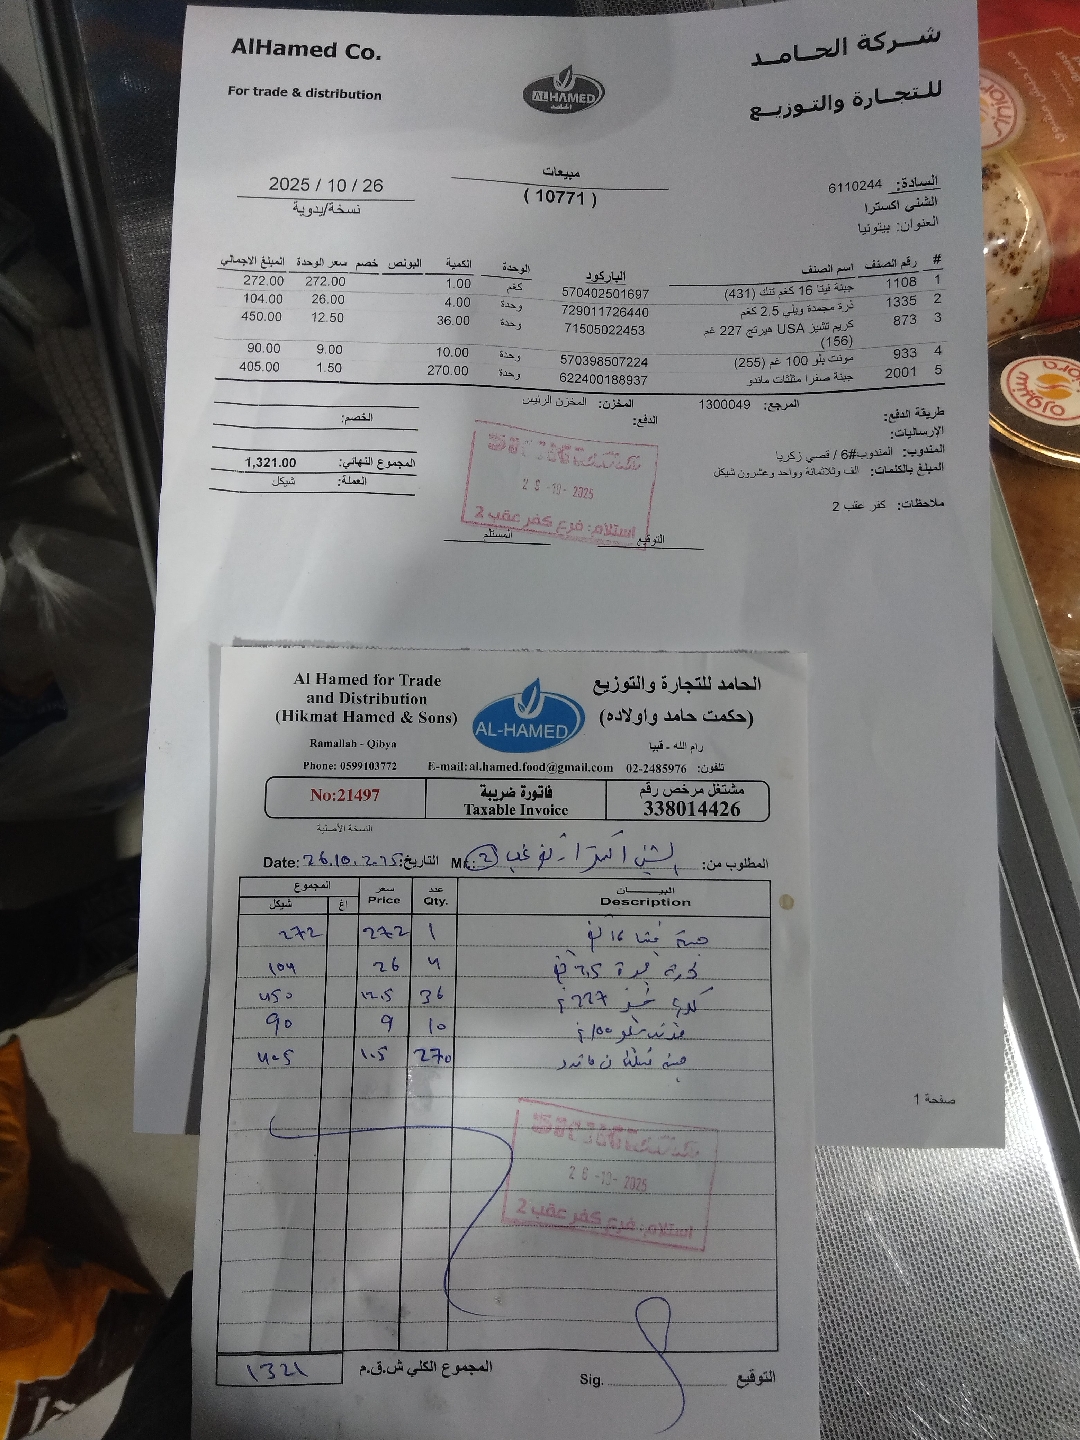 AlHamed Co.
شركة الحامد
For trade & distribution
للتجارة والتوزيع
ALHAMED
الحامد
مبيعات
( 10771 )
2025 / 10 / 26
نسخة/يدوية
السادة: 6110244
الشني اكسترا
العنوان: بيتونيا
# رقم الصنف اسم الصنف الباركود الوحدة الكمية البونص خصم سعر الوحدة المبلغ الاجمالي
1 1108 جبنة فيتا 16 كغم تنك (431) 570402501697 كغم 1.00 272.00 272.00
2 1335 ذرة مجمدة ويلي 2.5 كغم 729011726440 وحدة 4.00 26.00 104.00
3 873 كريم تشيز USA هيرتج 227 غم 71505022453 وحدة 36.00 12.50 450.00
(156)
4 933 مونت بلو 100 غم (255) 570398507224 وحدة 10.00 9.00 90.00
5 2001 جبنة صفرا مثلثات ماندو 622400188937 وحدة 270.00 1.50 405.00
طريقة الدفع: المرجع: 1300049 المخزن: المخزن الرئيس
الدفع:
الخصم:
الارساليات:
المندوب: المندوب#6 / قصي زكريا
المجموع النهائي: 1,321.00
المبلغ بالكلمات: الف وثلاثمائة وواحد وعشرون شيكل
العملة: شيكل
ملاحظات: كفر عقب 2
26 -10- 2025
استلام: فرع كفر عقب 2
التوقيع
المستلم
صفحة 1
Al Hamed for Trade
and Distribution
(Hikmat Hamed & Sons)
Ramallah - Qibya
Phone: 0599103772
AL-HAMED
الحامد للتجارة والتوزيع
(حكمت حامد واولاده)
رام الله - قبيا
E-mail:al.hamed.food@gmail.com
تلفون: 02-2485976
No:21497
فاتورة ضريبة
Taxable Invoice
مشتغل مرخص رقم
338014426
النسخة الأصلية
المطلوب من: الشني اكسترا Mr. 2
التاريخ: Date: 26.10.2025
البيــــان عدد سعر المجموع
Description Qty. Price اغ شيكل
جبنة فيتا 16 كغ 1 272 272
ذرة 2.5 كغ 4 26 104
227 غ 36 12.5 450
100 غ 10 9 90
جبنة مثلثات ماندو 270 1.5 405
26 -10- 2025
استلام: فرع كفر عقب 2
المجموع الكلي ش.ق.م 1321
التوقيع Sig.